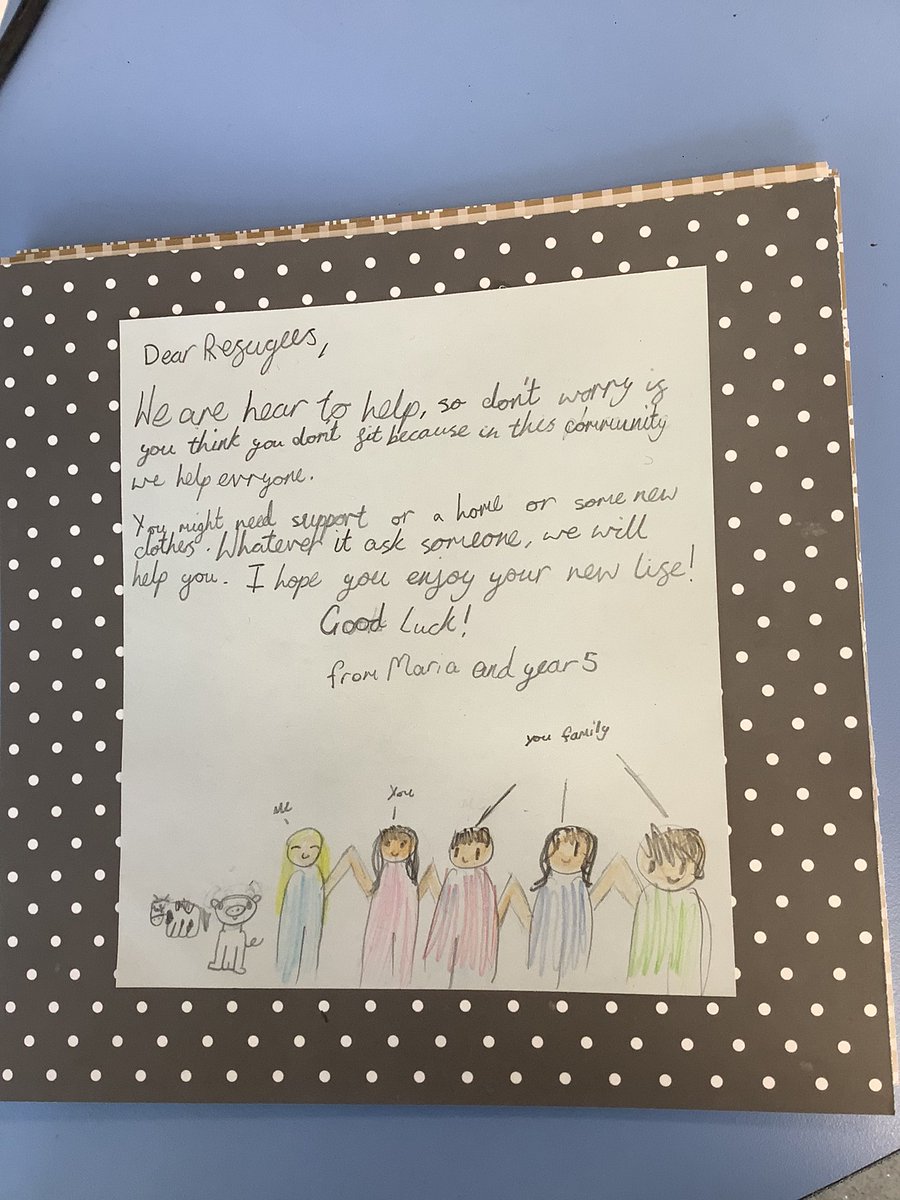 Dear Refugees,
We are hear to help, so don't worry if
you think you don't fit because in this community
we help evryone.
You might need support or a home or some new
clothes. Whatever it ask someone, we will
help you. I hope you enjoy your new life!
Good Luck!
from Maria and year 5
you family
Me
You